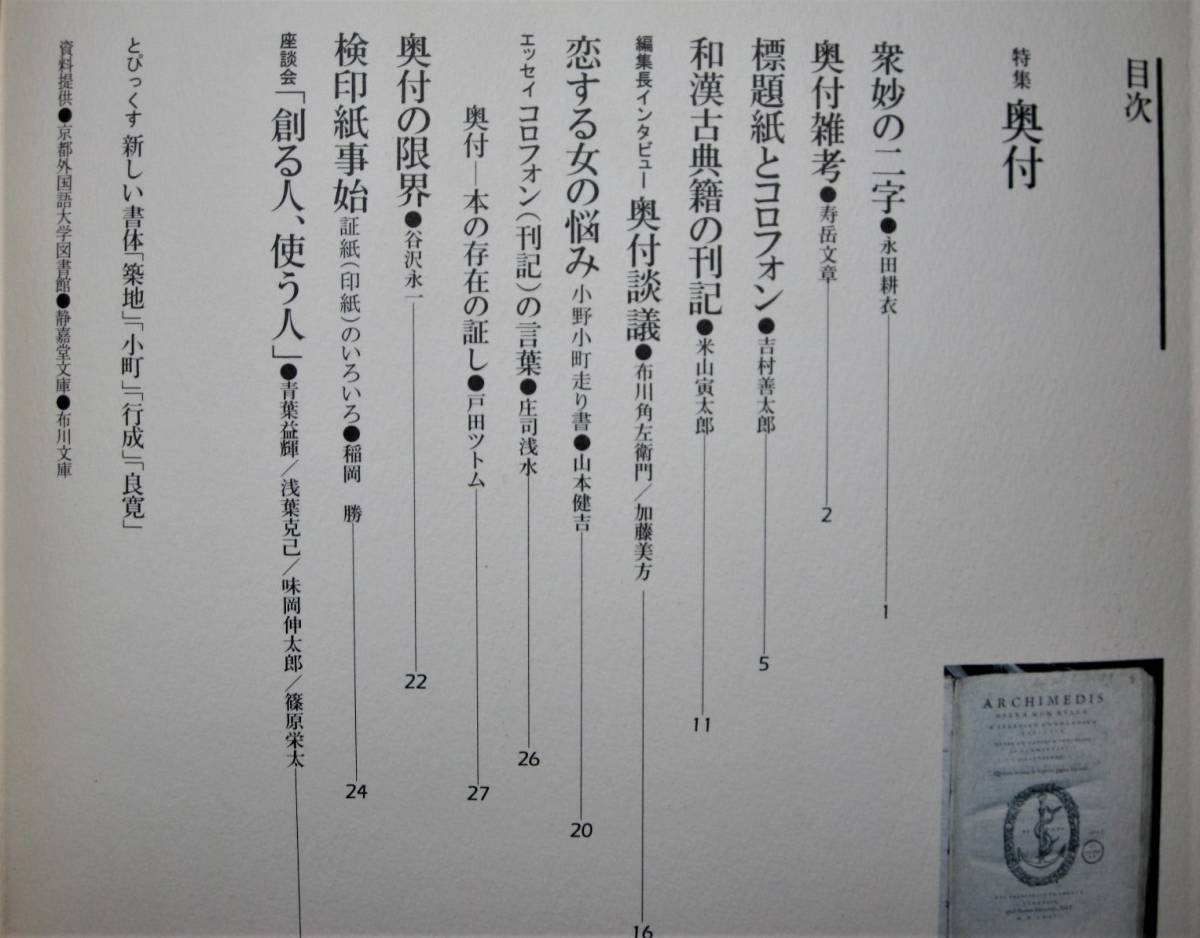 目次
特集 奥付
衆妙の二字●永田耕衣 1
奥付雑考●寿岳文章 2
標題紙とコロフォン●吉村善太郎 5
和漢古典籍の刊記●米山寅太郎 11
編集長インタビュー 奥付談議●布川角左衛門／加藤美方 16
恋する女の悩み 小野小町走り書●山本健吉 20
エッセイ コロフォン（刊記）の言葉●庄司浅水 26
奥付―本の存在の証し●戸田ツトム 27
奥付の限界●谷沢永一 22
検印紙事始 証紙（印紙）のいろいろ●稲岡 勝 24
座談会「創る人、使う人」●青葉益輝／浅葉克己／味岡伸太郎／篠原栄太
とぴっくす 新しい書体「築地」「小町」「行成」「良寛」
資料提供●京都外国語大学図書館●静嘉堂文庫●布川文庫
ARCHIMEDIS